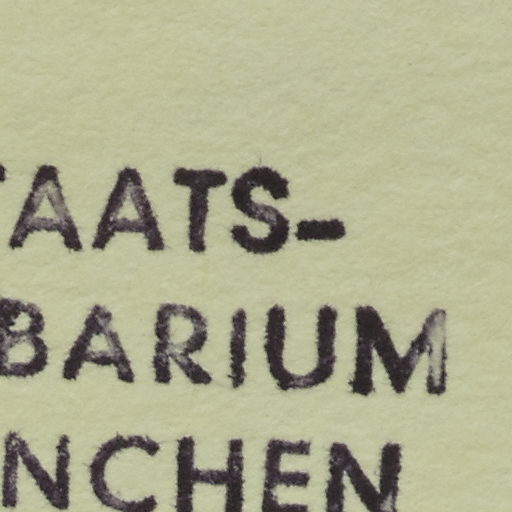 TAATS-
BARIUM
NCHEN